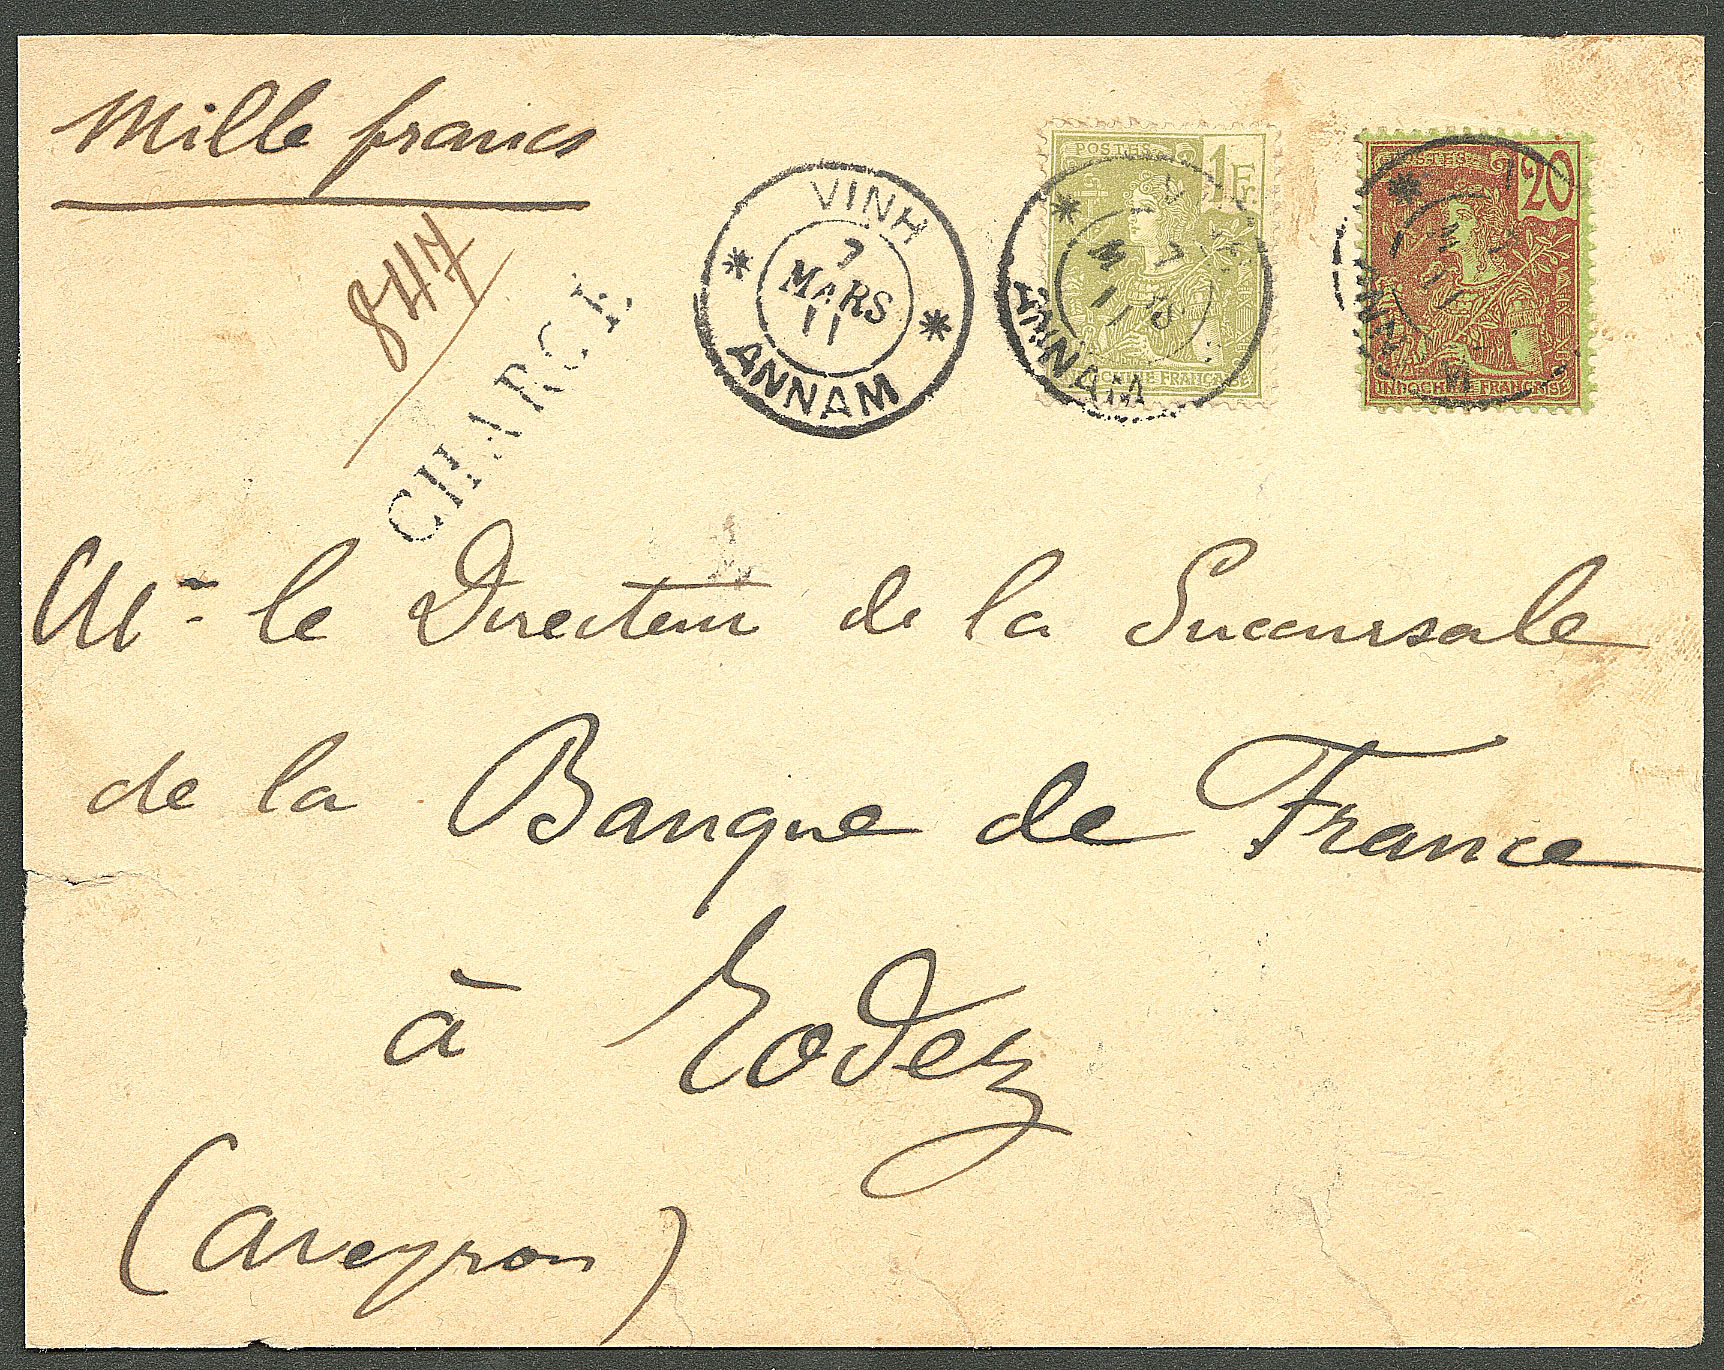 Mille francs
847
CHARGE
VINH
7
MARS
11
ANNAM
POSTES
1Fr.
7
11
ANNAM
INDOCHINE FRANÇAISE
POSTES
20
11
ANNAM
INDOCHINE FRANÇAISE
Mr le Directeur de la Succursale
de la Banque de France
à Rodez
(Aveyron)